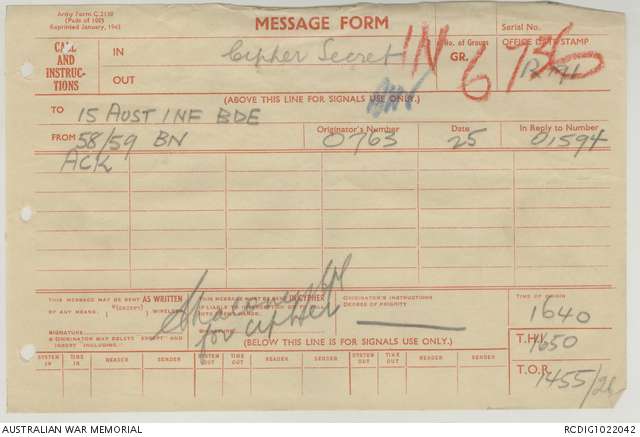 Army Form C.2130
(Pads of 100)
Reprinted January, 1943
MESSAGE FORM
Serial No.
CALL AND INSTRUC-TIONS
IN
Cipher Secret
IN
No. of Groups
GR.
67
OFFICE DATE STAMP
OUT
(ABOVE THIS LINE FOR SIGNALS USE ONLY.)
TO 15 AUST INF BDE
FROM 58/59 BN
Originator's Number
0763
Date
25
In Reply to Number
01594
ACK
THIS MESSAGE MAY BE SENT AS WRITTEN
BY ANY MEANS. (EXCEPT) WIRELESS.
SIGNATURE
ORIGINATOR MAY DELETE EXCEPT AND INSERT INCLUDING.
THIS MESSAGE MUST BE SENT IN CIPHER
IF LIABLE TO INTERCEPTION OR TO FALL INTO ENEMY HANDS.
for cipher
ORIGINATOR'S INSTRUCTIONS
DEGREE OF PRIORITY
TIME OF ORIGIN
1640
T.H.I.
1650
T.O.R.
1455/26
(BELOW THIS LINE IS FOR SIGNALS USE ONLY.)
SYSTEM IN TIME IN READER SENDER SYSTEM OUT TIME OUT READER SENDER SYSTEM OUT TIME OUT READER SENDER
AUSTRALIAN WAR MEMORIAL
RCDIG1022042